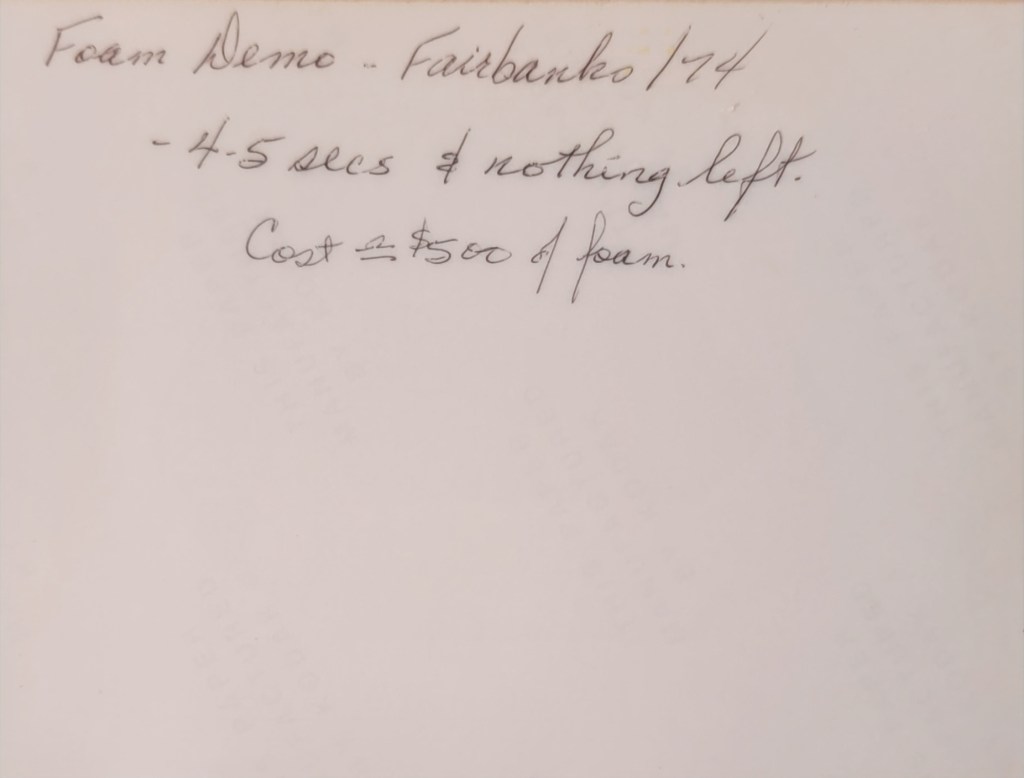 Foam Demo - Fairbanks /74
- 4-5 secs & nothing left.
Cost ≃ $500 of foam.